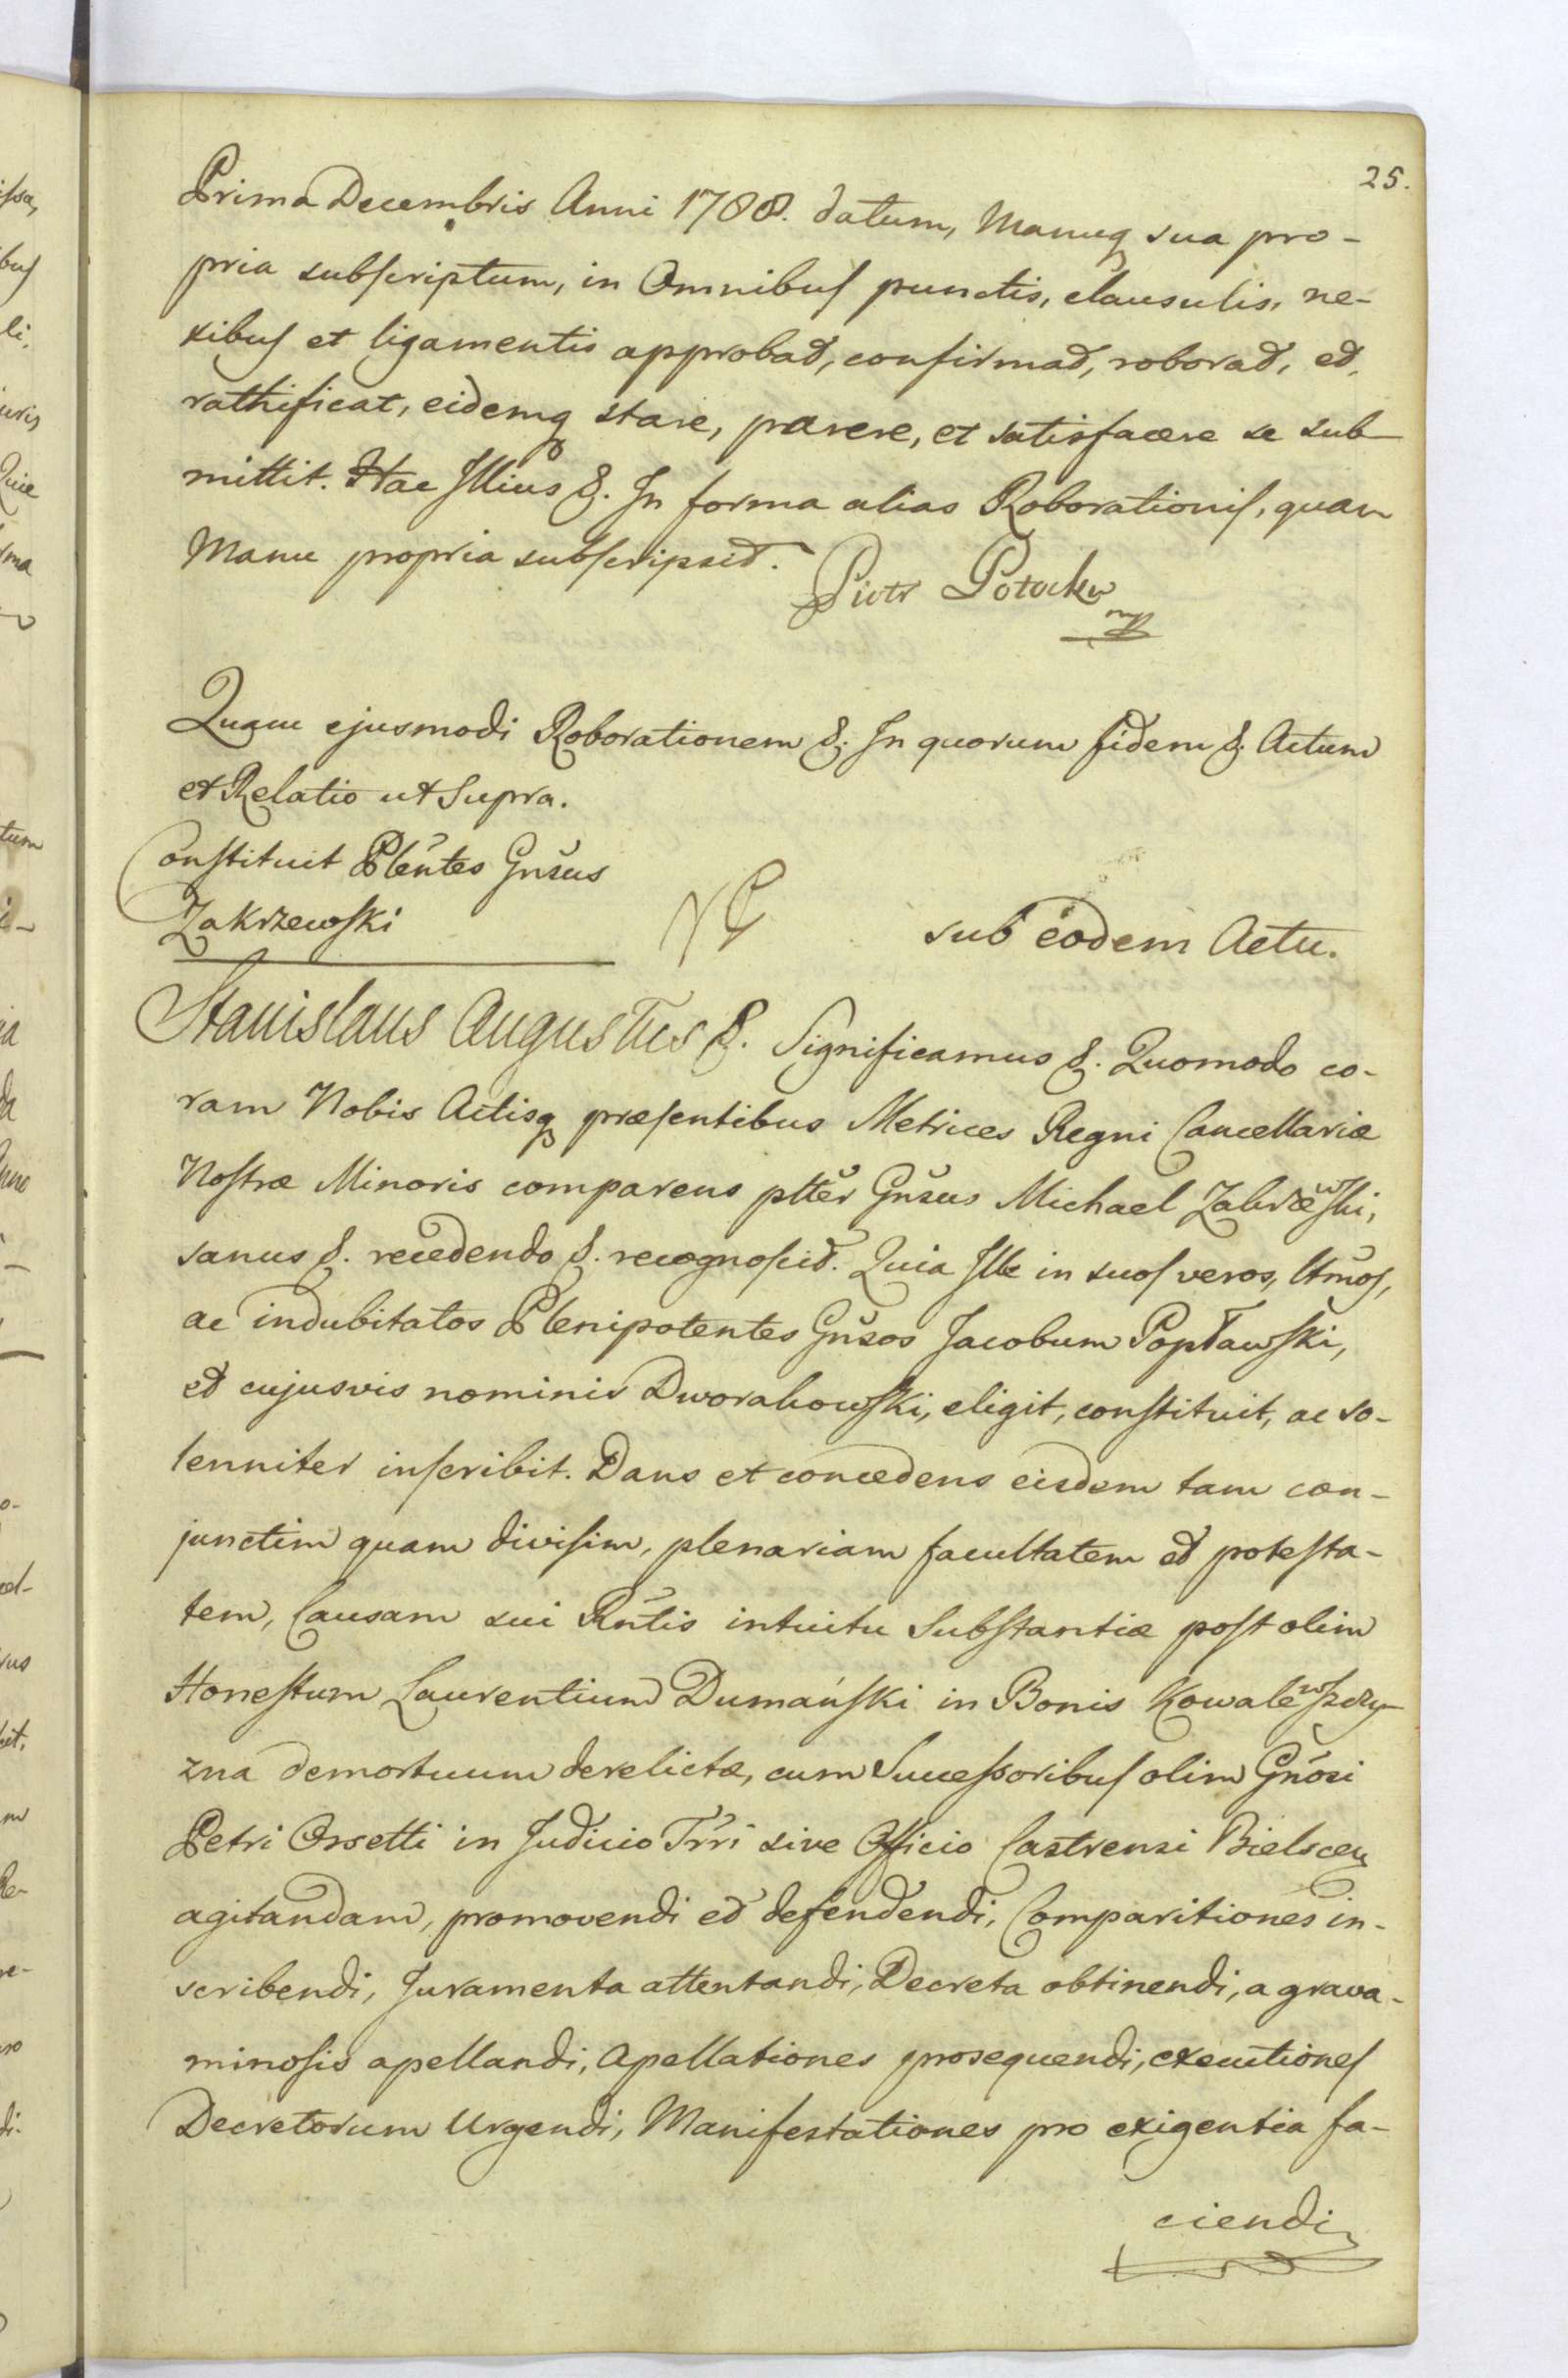 25.
Prima Decembris Anni 1788. datum, Manuq sua pro-
pria subscriptum, in Omnibus punctis, clausulis, ne-
xibus et ligamentis approbat, confirmat, roborat, et
rathificat, eidemq stare, parere, et satisfacere se sub
mittit. Hac Illius &. In forma alias Roborationis, quam
Manu propria subscripsit.
Piotr Potocki
mp
Quam ejusmodi Roborationem &. In quorum fidem &. Actum
et Relatio ut Supra.
Constituit Plentes Gnsus
Zakrzewski
sub eodem Actu.
Stanislaus Augustus &. Significamus &. Quomodo co-
ram Nobis Actisq præsentibus Metrices Regni Cancellariæ
Nostræ Minoris comparens ptter Gnsus Michael Zakrzewski,
sanus &. recedendo &. recognoscit. Quia Ille in suos veros, ltmos,
ac indubitatos Plenipotentes Gnsos Jacobum Popławski,
et cujusvis nominis Dworakowski, eligit, constituit, ac so-
lenniter inscribit. Dans et concedens eisdem tam con-
junctim quam divisim, plenariam facultatem et potesta-
tem, Causam sui Rntis intuitu Substantiæ post olim
Honestum Laurentium Dumański in Bonis Kowalewszczy-
zna demortuum derelictæ, cum Successoribus olim Gnosi
Petri Orsetti in Judicio Trri sive Officio Castrensi Bielscen
agitandam, promovendi et defendendi, Comparitiones in-
scribendi, Juramenta attentandi, Decreta obtinendi, a grava-
minosis apellandi, Apellationes prosequendi, executiones
Decretorum Urgendi, Manifestationes pro exigentia fa-
ciendi